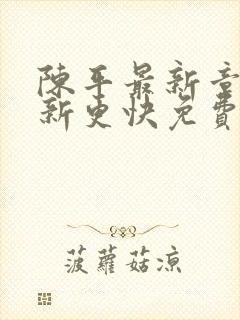 陳平最新章
新更快免費
菠蘿菇涼